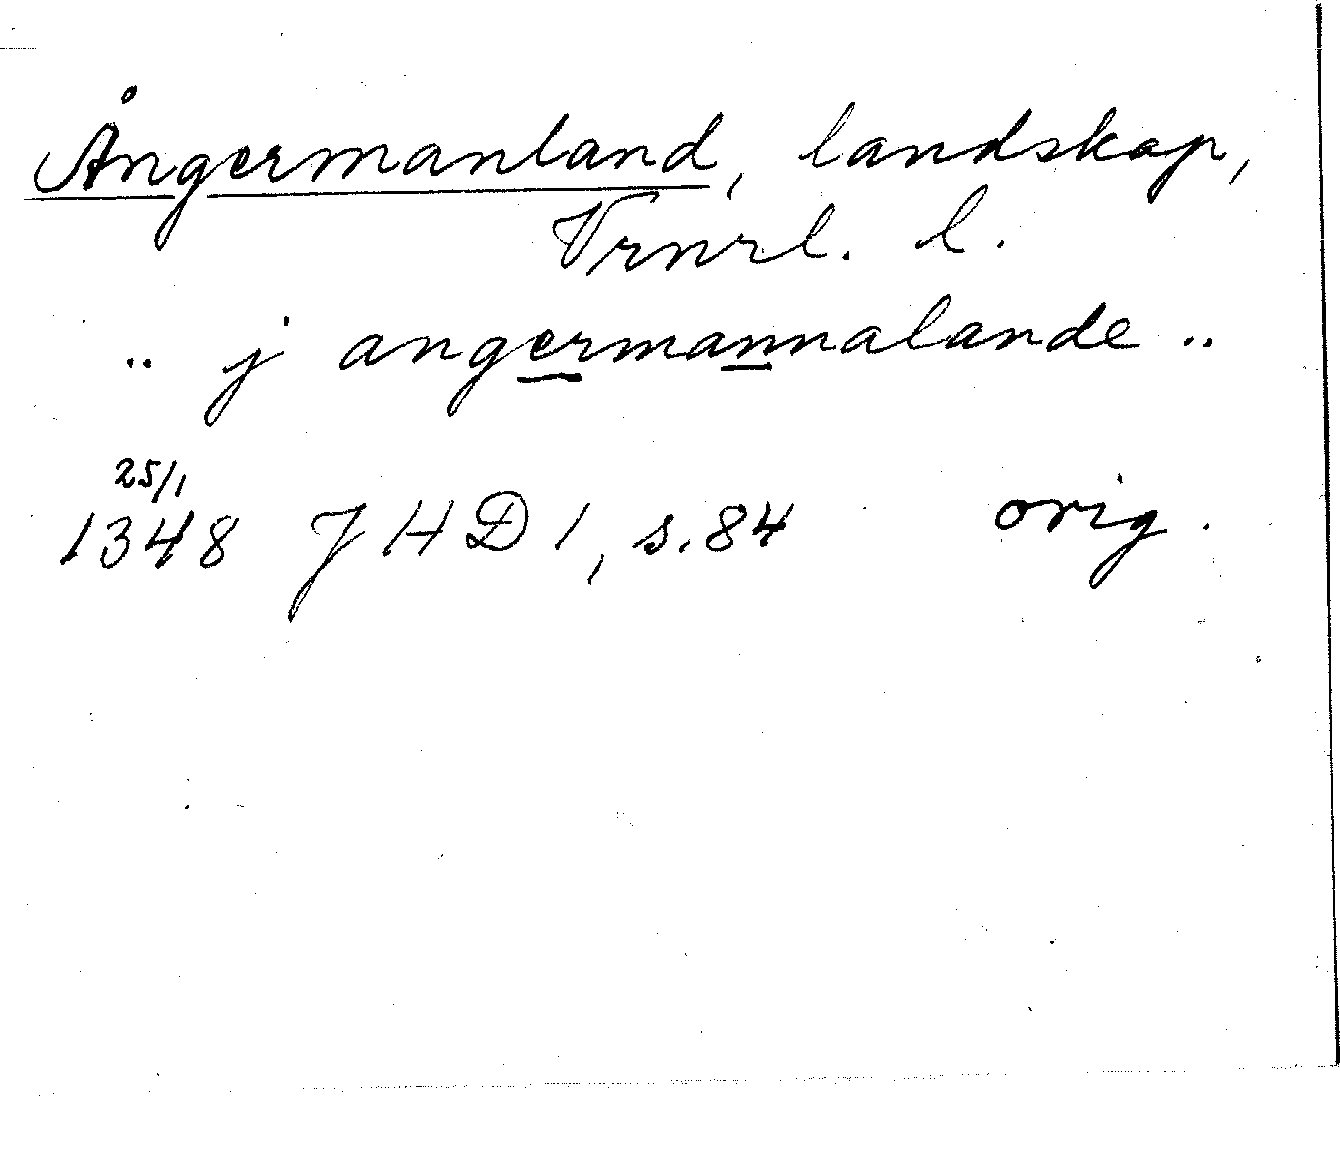 Ångermanland, landskap,
Vrnrl. l.
.. j angermannalande ..
25/1
1348 JHD 1, s. 84 orig.